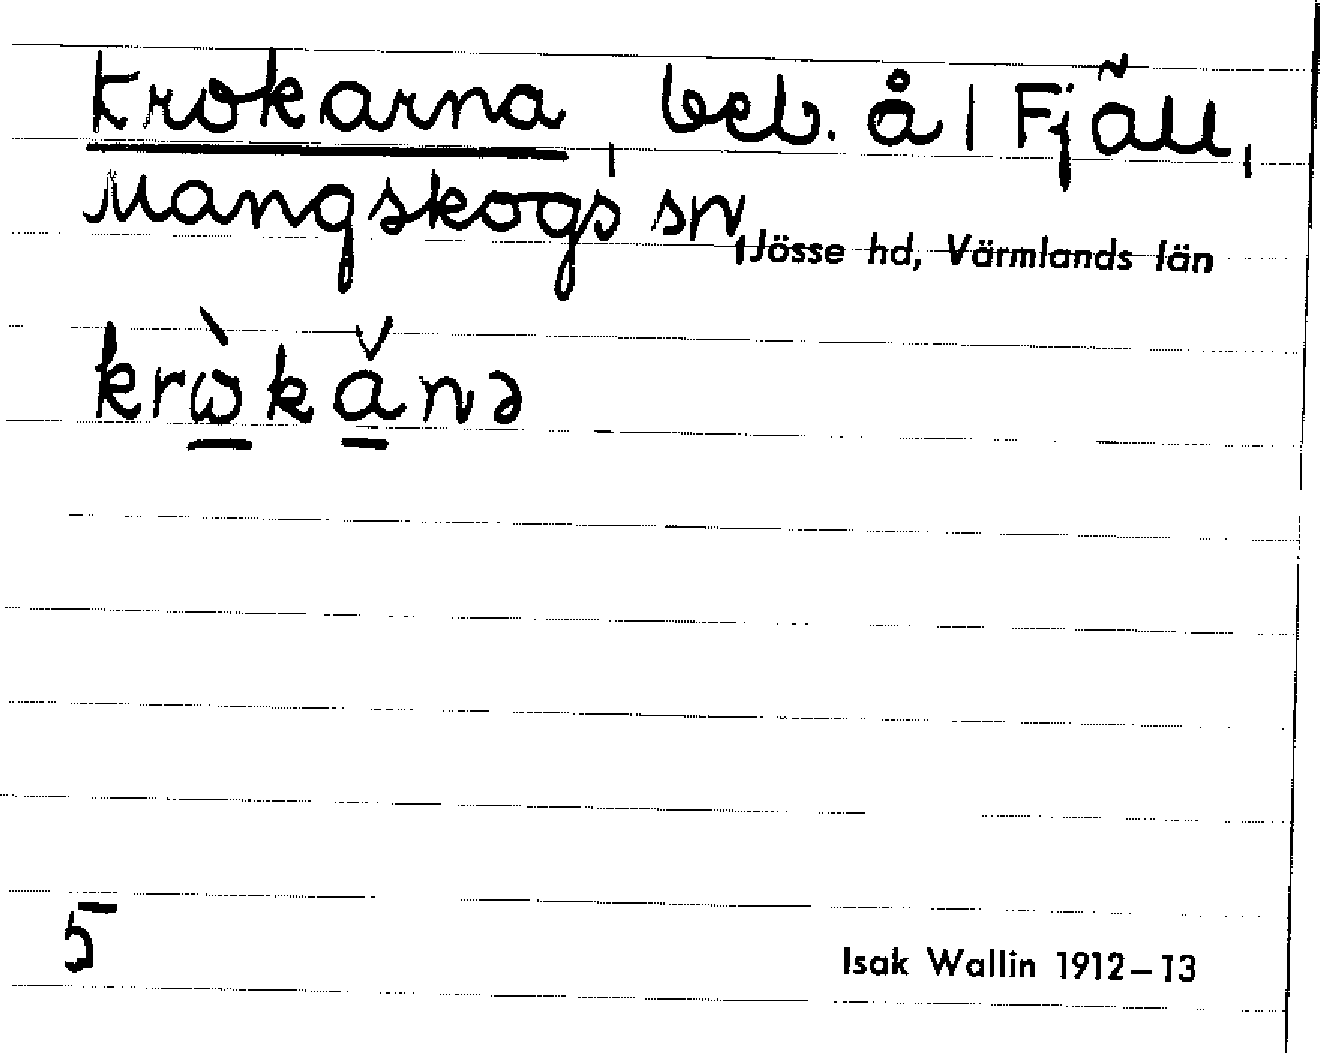 Krokarna, beb. å 1 Fjäll,
Mangskogs sn, Jösse hd, Värmlands län
krὼkǎnə
5
Isak Wallin 1912–13